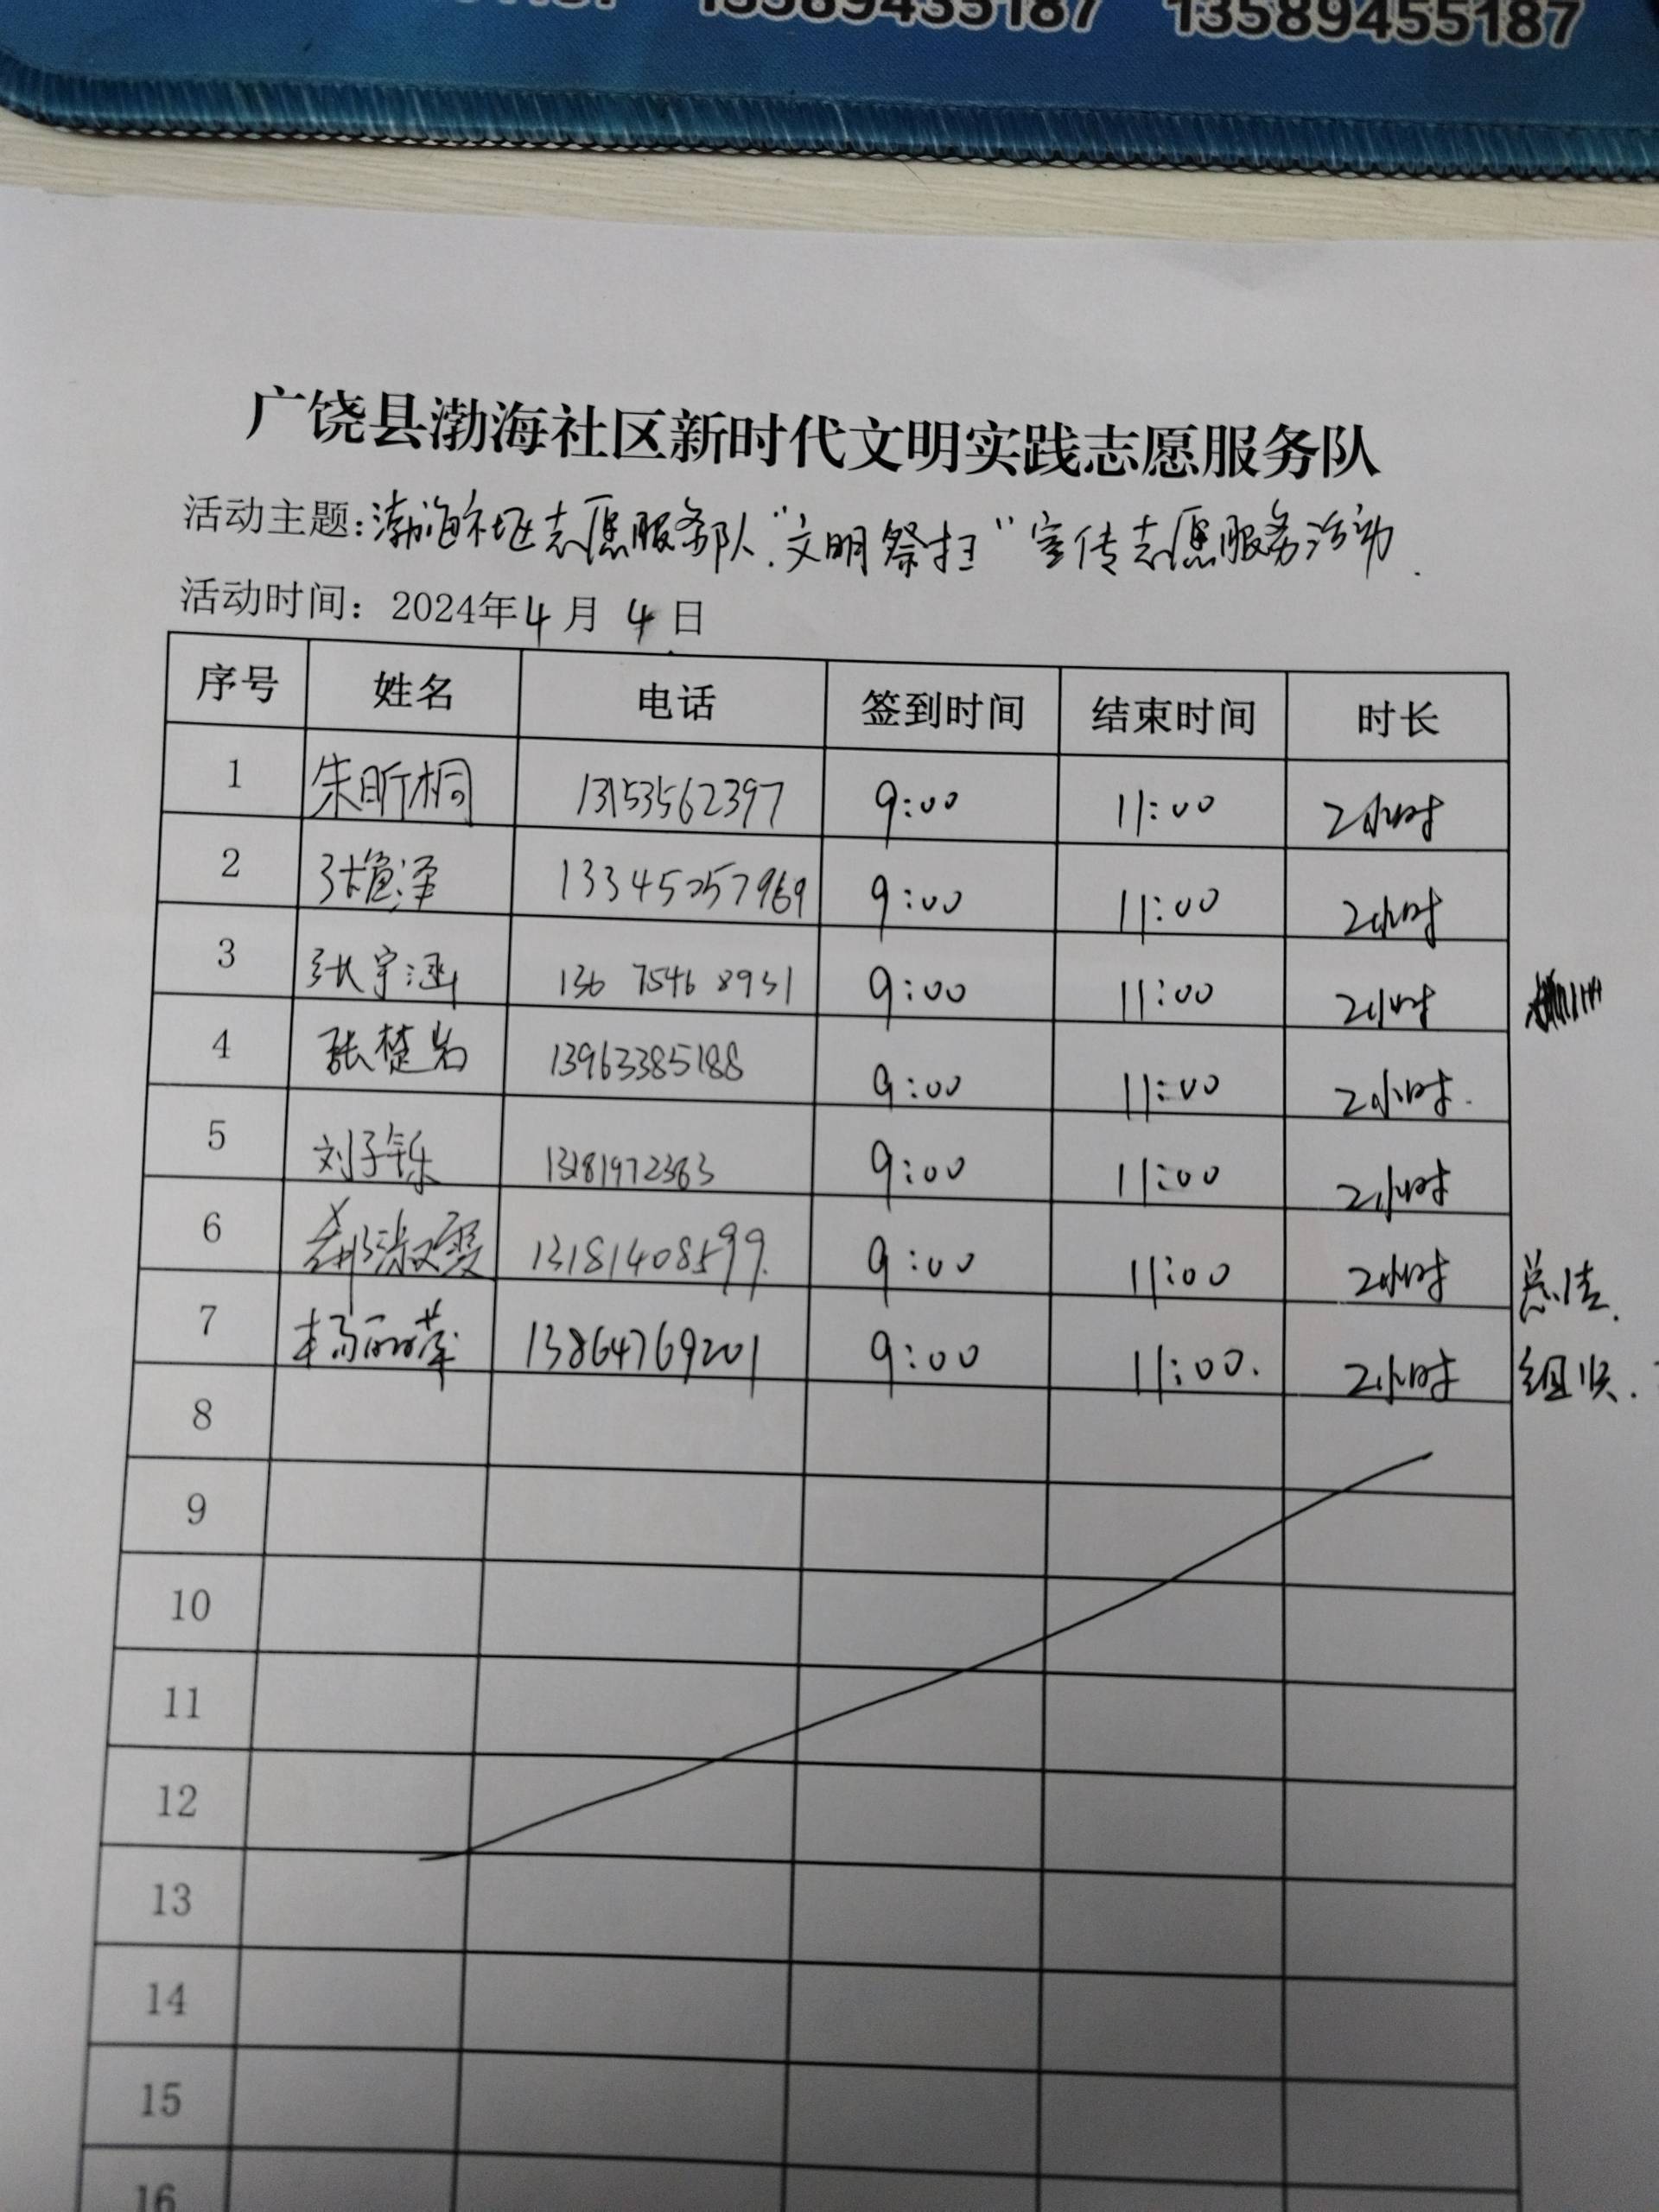 13589455187 13589455187
广饶县渤海社区新时代文明实践志愿服务队
活动主题:渤海社区志愿服务队“文明祭扫”宣传志愿服务活动.
活动时间：2024年4月4日
序号 姓名 电话 签到时间 结束时间 时长
1 朱昕桐 13153562397 9:00 11:00 2小时
2 张 泽 9:00 11:00 2小时
3 张宇涵 136 7546 8931 9:00 11:00 2小时
4 张楚岩 13963385188 9:00 11:00 2小时.
5 刘子铄 13181972363 9:00 11:00 2小时
6 郝淑霞 13181408599. 9:00 11:00 2小时 总结.
7 杨丽萍 13864769201 9:00 11:00. 2小时 组织.
8
9
10
11
12
13
14
15
16